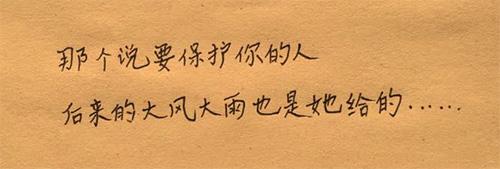 那个说要保护你的人
后来的大风大雨也是她给的……